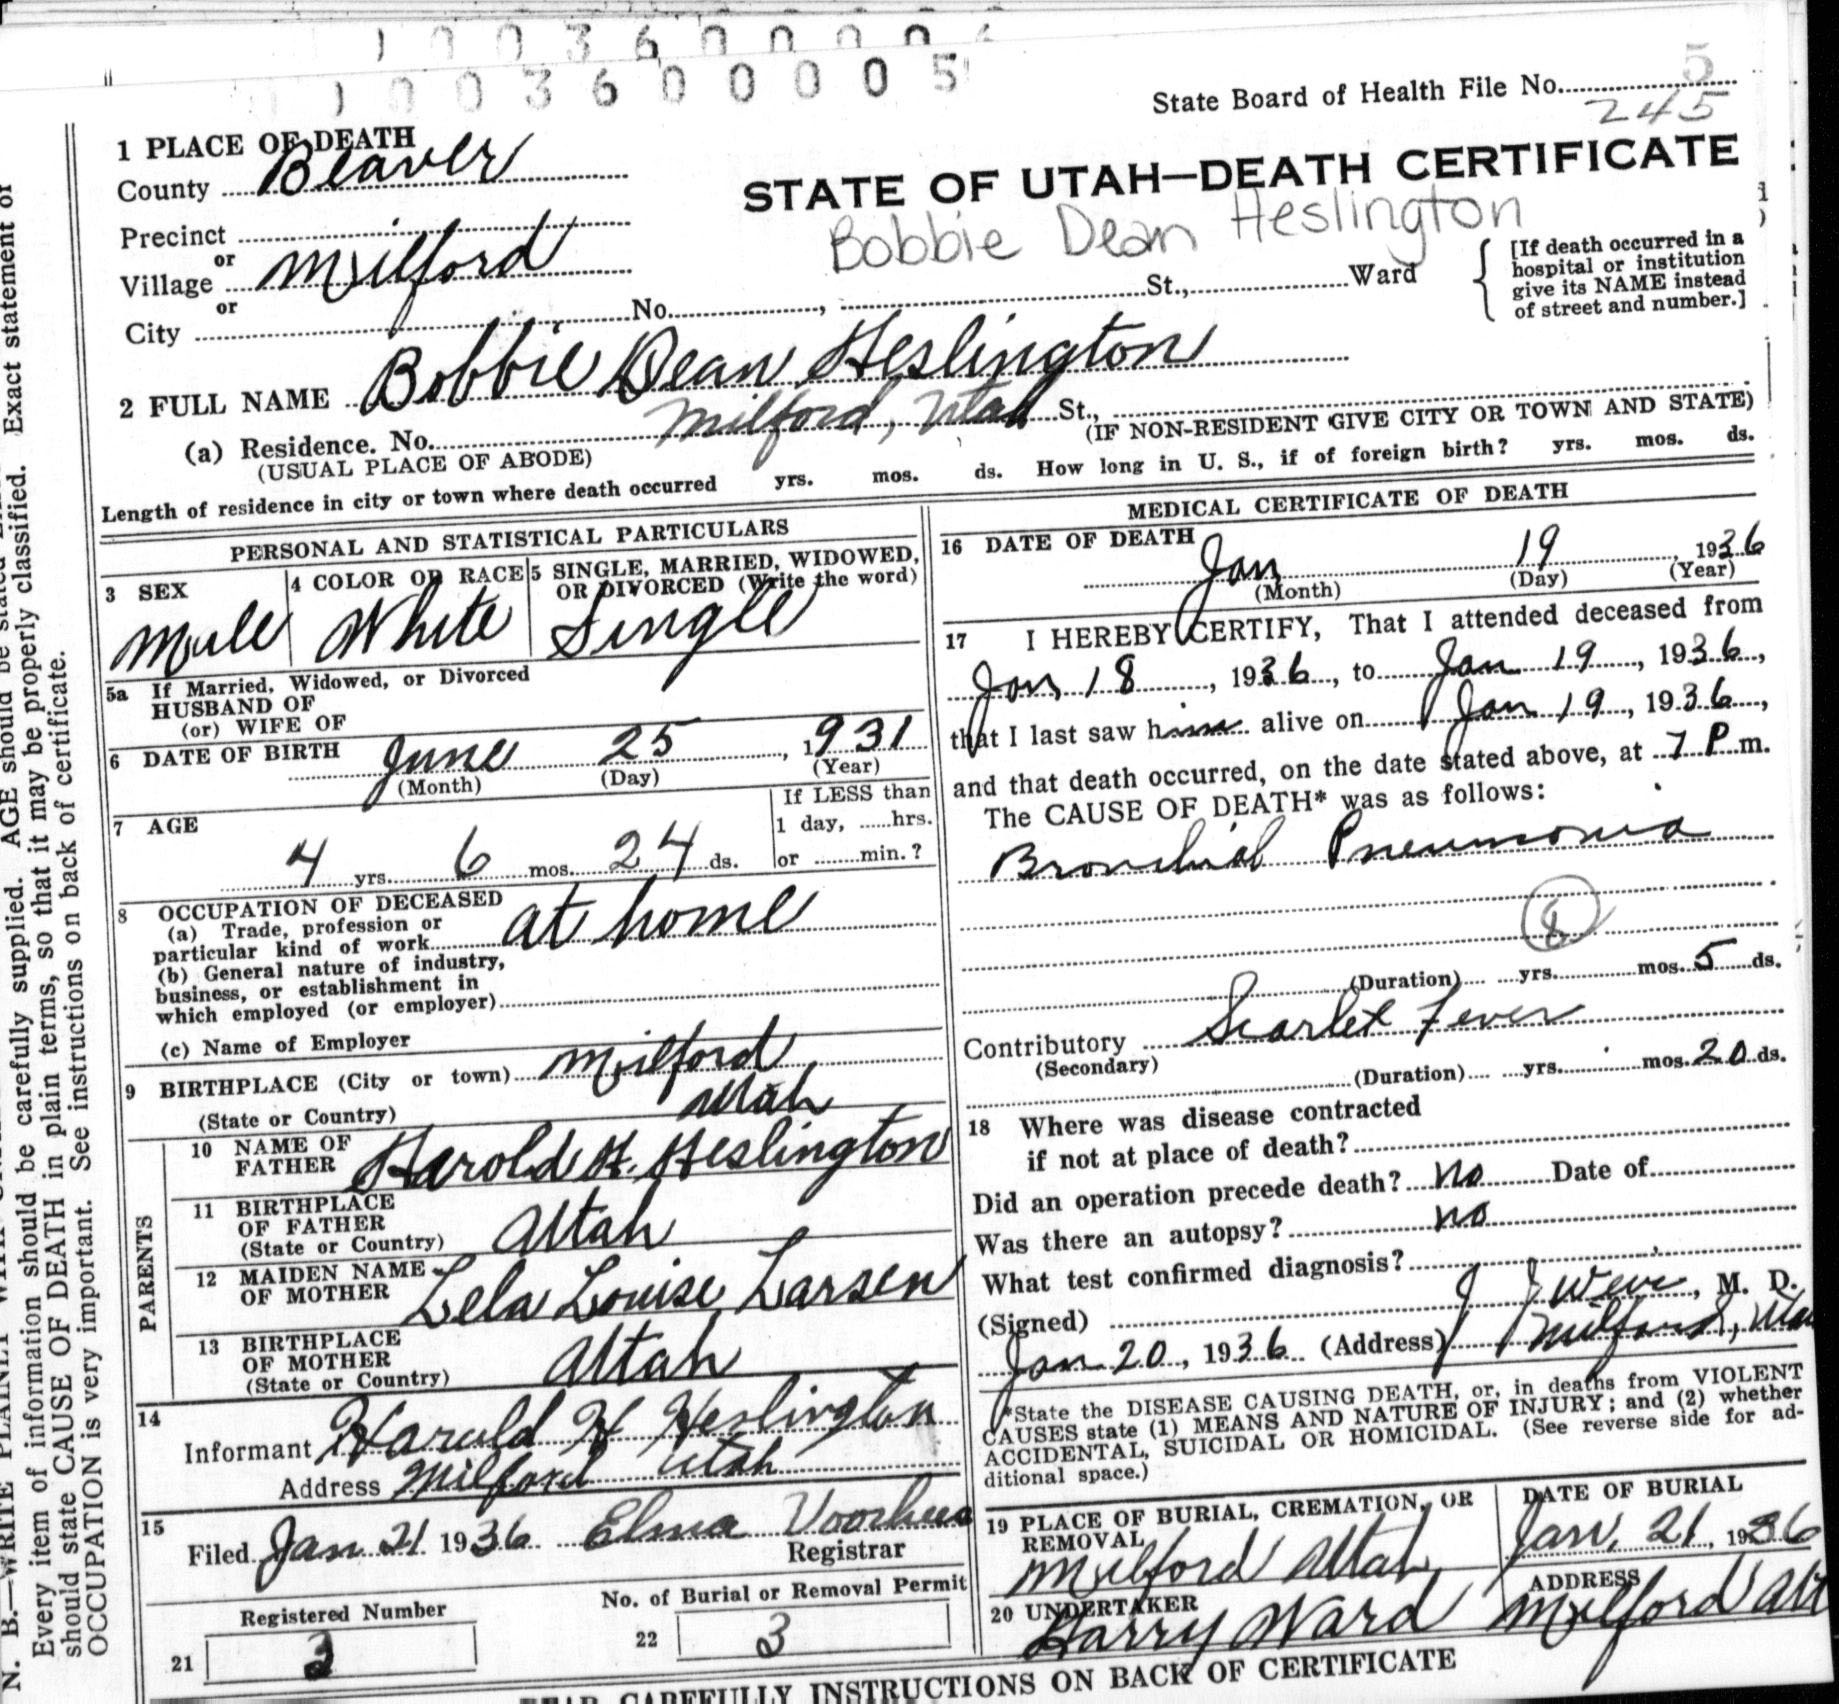 1003600005
State Board of Health File No. 5
245
1 PLACE OF DEATH
County Beaver
STATE OF UTAH—DEATH CERTIFICATE
Bobbie Dean Heslington
Precinct
or
Village Milford
or
City No. , St., Ward
[If death occurred in a
hospital or institution
give its NAME instead
of street and number.]
2 FULL NAME Bobbie Dean Heslington
(a) Residence. No. Milford, Utah St.,
(USUAL PLACE OF ABODE) (IF NON-RESIDENT GIVE CITY OR TOWN AND STATE)
Length of residence in city or town where death occurred yrs. mos. ds. How long in U. S., if of foreign birth? yrs. mos. ds.
PERSONAL AND STATISTICAL PARTICULARS
3 SEX
Male
4 COLOR OR RACE
White
5 SINGLE, MARRIED, WIDOWED,
OR DIVORCED (Write the word)
Single
5a If Married, Widowed, or Divorced
HUSBAND OF
(or) WIFE OF
6 DATE OF BIRTH June 25, 1931
(Month) (Day) (Year)
7 AGE
4 yrs. 6 mos. 24 ds.
If LESS than
1 day, hrs.
or min.?
8 OCCUPATION OF DECEASED
(a) Trade, profession or
particular kind of work at home
(b) General nature of industry,
business, or establishment in
which employed (or employer)
(c) Name of Employer
9 BIRTHPLACE (City or town) Milford
(State or Country) Utah
PARENTS
10 NAME OF
FATHER Harold H. Heslington
11 BIRTHPLACE
OF FATHER
(State or Country) Utah
12 MAIDEN NAME
OF MOTHER Lela Louise Larsen
13 BIRTHPLACE
OF MOTHER
(State or Country) Utah
14
Informant Harold H Heslington
Address Milford Utah
15
Filed Jan 21 1936 Elma Voorhees
Registrar
Registered Number
21 3
No. of Burial or Removal Permit
22 3
MEDICAL CERTIFICATE OF DEATH
16 DATE OF DEATH
Jan 19, 1936
(Month) (Day) (Year)
17 I HEREBY CERTIFY, That I attended deceased from
Jan 18, 1936, to Jan 19, 1936,
that I last saw him alive on Jan 19, 1936,
and that death occurred, on the date stated above, at 7 P m.
The CAUSE OF DEATH* was as follows:
Bronchial Pneumonia
(Duration) yrs. mos. 5 ds.
Contributory Scarlet Fever
(Secondary)
(Duration) yrs. mos. 20 ds.
18 Where was disease contracted
if not at place of death?
Did an operation precede death? no Date of
Was there an autopsy? no
What test confirmed diagnosis?
(Signed) J J Weir, M. D.
Jan 20, 1936 (Address) Milford, Utah
*State the DISEASE CAUSING DEATH, or, in deaths from VIOLENT
CAUSES state (1) MEANS AND NATURE OF INJURY; and (2) whether
ACCIDENTAL, SUICIDAL OR HOMICIDAL. (See reverse side for ad-
ditional space.)
19 PLACE OF BURIAL, CREMATION, OR
REMOVAL
Milford Utah
DATE OF BURIAL
Jan. 21, 1936
20 UNDERTAKER
Harry Ward
ADDRESS
Milford Ut
READ CAREFULLY INSTRUCTIONS ON BACK OF CERTIFICATE
N. B.—WRITE PLAINLY
Every item of information should be carefully supplied. AGE should be stated Exact statement of
should state CAUSE OF DEATH in plain terms, so that it may be properly classified.
OCCUPATION is very important. See instructions on back of certificate.